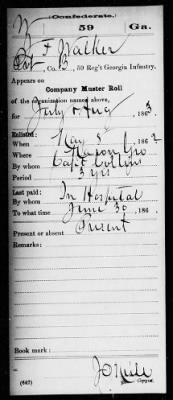 (Confederate.)
59 Ga.
F Walker
Co. B, 59 Reg't Georgia Infantry.
Appears on
Company Muster Roll
of the organization named above,
for July & Aug, 1863.
Enlisted:
When May 8, 1862
Where Macon Geo
By whom Capt Collins
Period 3 yrs
Last paid:
By whom In Hospital
To what time June 30, 186
Present or absent Present
Remarks:
Book mark:
(642)
Copyist.